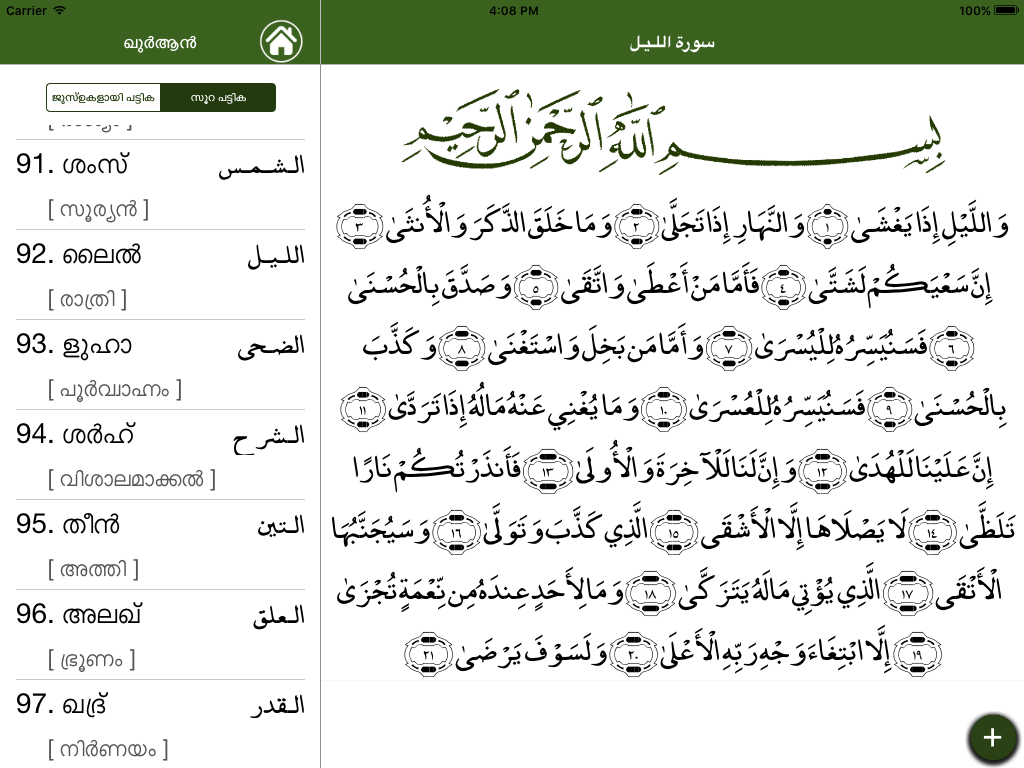 Carrier
4:08 PM
100%
ഖുർആൻ
سورة الليل
ജുസ്ഉകളായി പട്ടിക
സൂറ പട്ടിക
91. ശംസ് الشمس
[ സൂര്യൻ ]
92. ലൈൽ الليل
[ രാത്രി ]
93. ളുഹാ الضحى
[ പൂർവാഹ്നം ]
94. ശർഹ് الشرح
[ വിശാലമാക്കൽ ]
95. തീൻ التين
[ അത്തി ]
96. അലഖ് العلق
[ ഭ്രൂണം ]
97. ഖദ്ർ القدر
[ നിർണയം ]
بِسْمِ اللَّهِ الرَّحْمَٰنِ الرَّحِيمِ
وَاللَّيْلِ إِذَا يَغْشَىٰ ١ وَالنَّهَارِ إِذَا تَجَلَّىٰ ٢ وَمَا خَلَقَ الذَّكَرَ وَالْأُنثَىٰ ٣
إِنَّ سَعْيَكُمْ لَشَتَّىٰ ٤ فَأَمَّا مَنْ أَعْطَىٰ وَاتَّقَىٰ ٥ وَصَدَّقَ بِالْحُسْنَىٰ
٦ فَسَنُيَسِّرُهُ لِلْيُسْرَىٰ ٧ وَأَمَّا مَن بَخِلَ وَاسْتَغْنَىٰ ٨ وَكَذَّبَ
بِالْحُسْنَىٰ ٩ فَسَنُيَسِّرُهُ لِلْعُسْرَىٰ ١٠ وَمَا يُغْنِي عَنْهُ مَالُهُ إِذَا تَرَدَّىٰ ١١
إِنَّ عَلَيْنَا لَلْهُدَىٰ ١٢ وَإِنَّ لَنَا لَلْآخِرَةَ وَالْأُولَىٰ ١٣ فَأَنذَرْتُكُمْ نَارًا
تَلَظَّىٰ ١٤ لَا يَصْلَاهَا إِلَّا الْأَشْقَى ١٥ الَّذِي كَذَّبَ وَتَوَلَّىٰ ١٦ وَسَيُجَنَّبُهَا
الْأَتْقَى ١٧ الَّذِي يُؤْتِي مَالَهُ يَتَزَكَّىٰ ١٨ وَمَا لِأَحَدٍ عِندَهُ مِن نِّعْمَةٍ تُجْزَىٰ
١٩ إِلَّا ابْتِغَاءَ وَجْهِ رَبِّهِ الْأَعْلَىٰ ٢٠ وَلَسَوْفَ يَرْضَىٰ ٢١
+